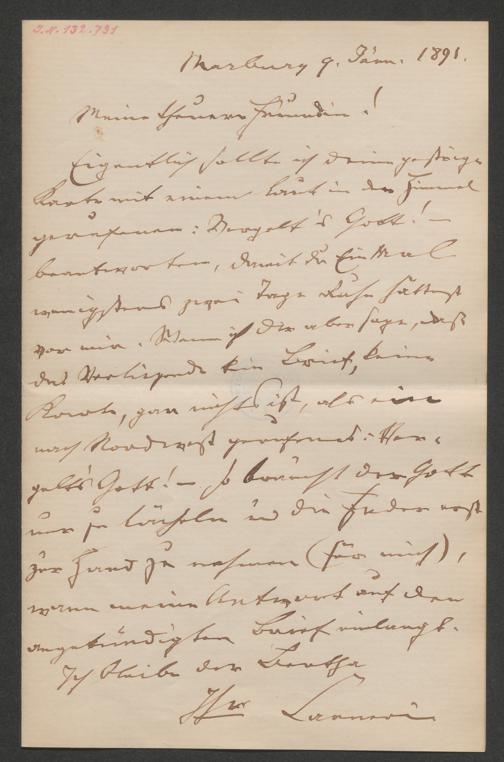 I.N. 132.731
Marburg 9. Jänn. 1891.
Meine theuere Freundin!
Eigentlich sollte ich deine gestrige
Karte mit einem laut in den Himmel
gerufenen: Vergelt's Gott! —
beantworten, damit du Ein Mal
wenigstens zwei Tage Ruhe hättest
vor mir. Wenn ich dir aber sage, daß
das Vorliegende kein Brief, keine
Karte, gar nichts ist, als ein
nach Nordwest gerufenes: Ver-
gelt's Gott! — so brauchst du
nur zu lächeln und die Feder erst
zur Hand zu nehmen (für mich),
wann meine Antwort auf den
angekündigten Brief einlangt.
Ich bleibe der Bertha
Ihr Carneri